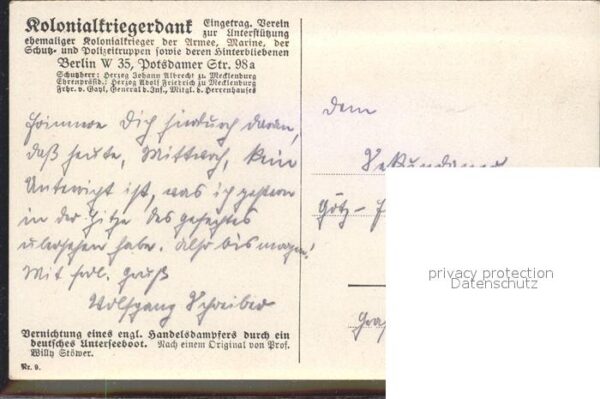 Kolonialkriegerdank Eingetrag. Verein
zur Unterstützung
ehemaliger Kolonialkrieger der Armee, Marine, der
Schutz- und Polizeitruppen sowie deren Hinterbliebenen
Berlin W 35, Potsdamer Str. 98a
Schutzherr: Herzog Johann Albrecht zu Mecklenburg
Ehrenpräsid.: Herzog Adolf Friedrich zu Mecklenburg
Frhr. v. Gayl, General d. Inf., Mitgl. d. Herrenhauses
Erinnere Dich hierdurch daran,
daß heute, Mittwoch, kein
Unterricht ist, was ich gestern
in der Hitze des Gefechtes
übersehen habe. Also bis morgen!
Mit frdl. Gruß
Wolfgang Schreiber
Vernichtung eines engl. Handelsdampfers durch ein
deutsches Unterseeboot. Nach einem Original von Prof.
Willy Stöwer.
Nr. 9.
dem
Sekundaner
Götz
privacy protection
Datenschutz